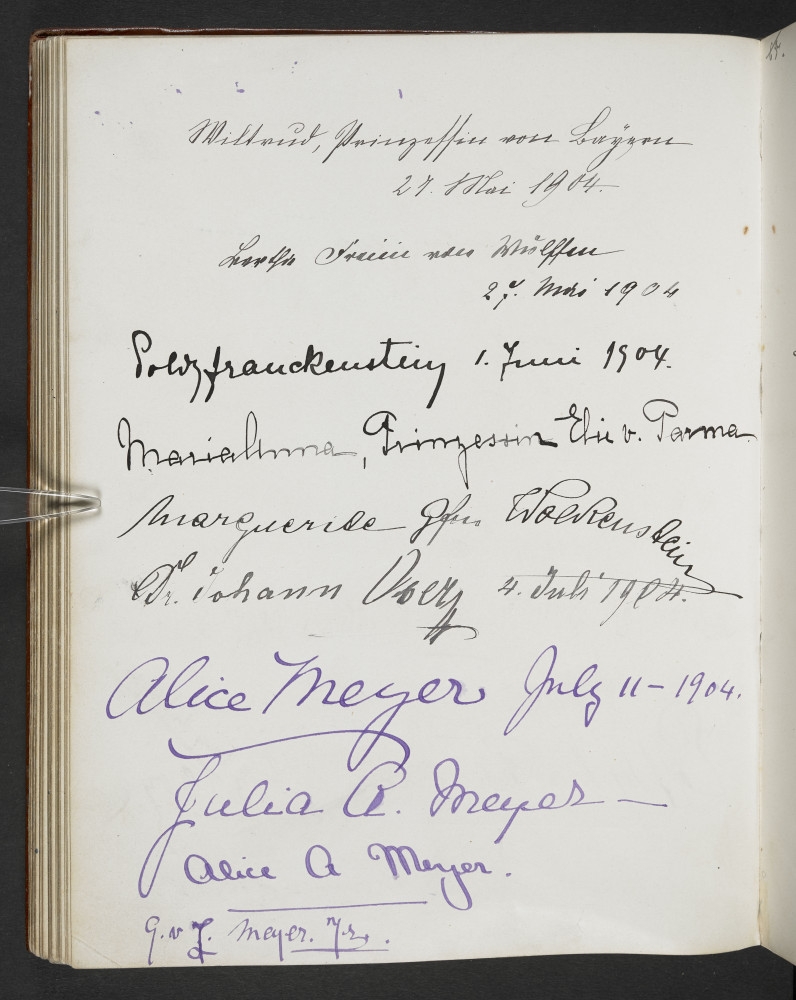 Wiltrud, Prinzessin von Bayern
27. Mai 1904.
Bertha Freiin von Wülffen
27. Mai 1904
Poldy Franckenstein 1. Juni 1904.
Maria Anna, Prinzessin Elie v. Parma
Marguerite Gfin. Wolkenstein
Dr. Johann 4. Juli 1904.
Alice Meyer July 11-1904.
Julia A. Meyer —
Alice A Meyer.
G. v L. Meyer. Jr.